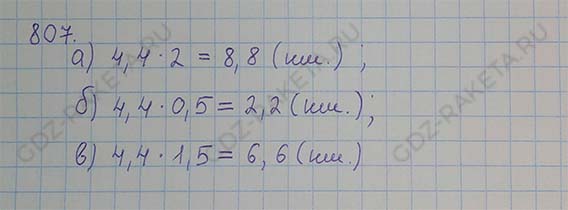 807.
а) 4,4 · 2 = 8,8 (км.) ;
б) 4,4 · 0,5 = 2,2 (км.);
в) 4,4 · 1,5 = 6,6 (км.)
GDZ-RAKETA.RU
GDZ-RAKETA.RU
GDZ-RAKETA.RU